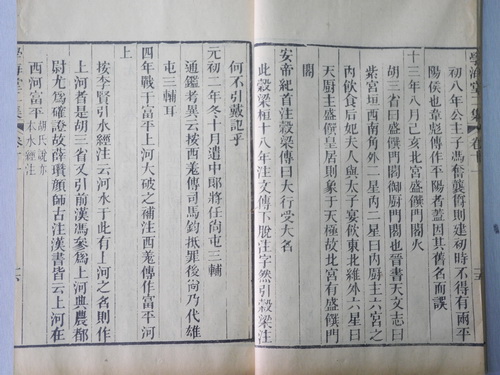 初八年公主子馮奮襲爵則建初時不得有兩平
陽侯也韋彪傳作平陽者蓋因其舊名而誤
十三年八月己亥北宮盛饌門閣火
胡三省曰盛饌門閣御廚門閣也晉書天文志曰
紫宮垣西南角外二星內二星曰內廚主六宮之
內飲食后妃夫人與太子宴飲東北維外六星曰
天廚主盛饌皇居則象于天極故北宮有盛饌門
閣
安帝紀首注穀梁傳曰大行受大名
此穀梁桓十八年注文傳下脫注字然引穀梁注
何不引戴記乎
元初二年冬十月遣中郎將任尚屯三輔
通鑑考異云按西羌傳司馬鈞抵罪後尚乃代雄
屯三輔耳
四年戰于富平上河大破之補注西羌傳作富平河
上
按李賢引水經注云河水于此有上河之名則作
上河者是胡三省又引前漢馮參爲上河典農都
尉尤爲確證故薛瓚顏師古注漢書皆云上河在
西河富平胡氏說亦本水經注